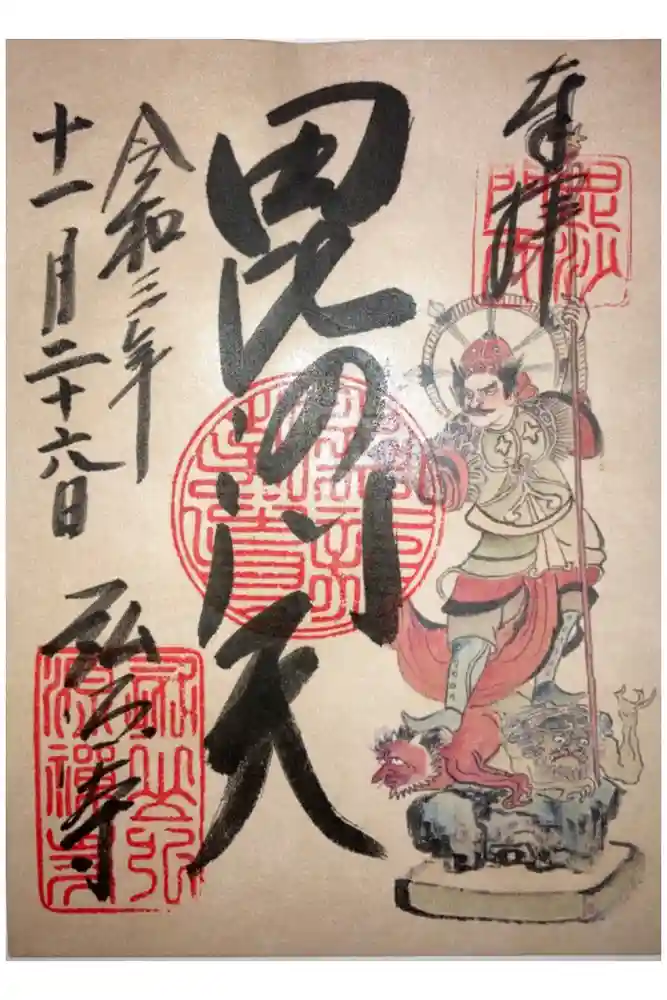 奉拝
毘沙門天
令和三年
十一月二十六日
弘源寺